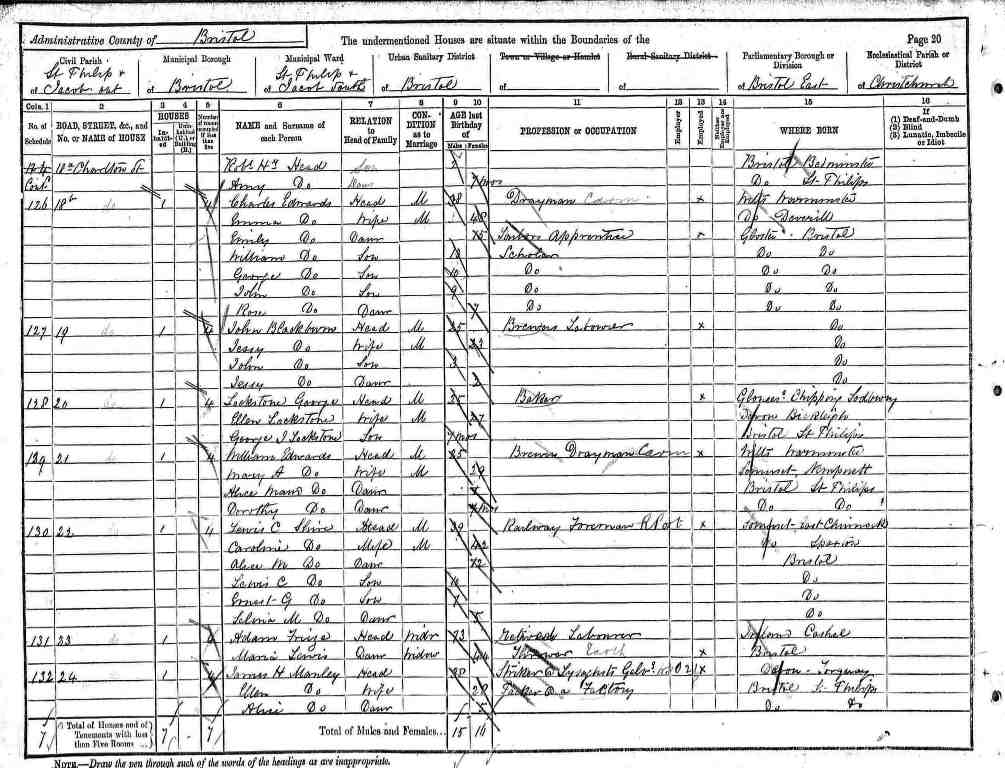 Administrative County of Bristol The undermentioned Houses are situate within the Boundaries of the Page 20
Civil Parish Municipal Borough Municipal Ward Urban Sanitary District Town or Village or Hamlet Rural Sanitary District Parliamentary Borough or Division Ecclesiastical Parish or District
of St Philip & Jacob out of Bristol of St Philip & Jacob South of Bristol of of of Bristol East of Christchurch
Cols. 1 2 3 4 5 6 7 8 9 10 11 12 13 14 15 16
No. of Schedule ROAD, STREET, &c., and No. or NAME of HOUSE HOUSES Inhabited Uninhabited (U.) or Building (B.) Number of rooms occupied if less than five NAME and Surname of each Person RELATION to Head of Family CONDITION as to Marriage AGE last Birthday of Males Females PROFESSION or OCCUPATION Employer Employed Neither Employer nor Employed WHERE BORN If (1) Deaf-and-Dumb (2) Blind (3) Lunatic, Imbecile or Idiot
Cont. Charlton St Robt Hy Head Son Bristol Bedminster
Amy Do Daur 7 mos Do St Philips
126 18b do 1 4 Charles Edwards Head M 38 Drayman x Wilts Warminster
Emma Do Wife M 48 Do Deverill
Emily Do Daur 15 Tailors Apprentice x Gloster Bristol
William Do Son Scholar Do Do
George Do Son 10 Do Do Do
John Do Son 9 Do Do Do
Rose Do Daur 7 Do Do Do
127 19 do 1 4 John Blackburn Head M 25 Brewers Labourer x Do
Jessy Do Wife M 23 Do
John Do Son 3 Do
Jessy Do Daur 2 Do
128 20 do 1 4 Lockstone George Head M 25 Baker x Glouces. Chipping Sodbury
Ellen Lockstone Wife M 27 Devon Bickleigh
George J Lockstone Son 7 mos Bristol St Philips
129 21 do 1 4 William Edwards Head M 25 Brewers Drayman x Wilts Warminster
Mary A Do Wife M 29 Somerset, Kempnett
Alice Maud Do Daur Bristol St Philips
Dorothy Do Daur mos Do Do
130 22 do 1 4 Lewis C Head M 39 Railway Foreman x Somerset East Chinnock
Caroline Do Wife M 42 Do
Alice M Do Daur 12 Bristol
Lewis C Do Son 10 Do
Ernest G Do Son 7 Do
Selina M Do Daur 5 Do
131 23 do 1 Adam Head Widr 73 Retired Labourer Ireland Cashel
Maria Lewis Daur Widow 44 x Bristol
132 24 do 1 4 James H Manley Head 38 Striker x Devon Torquay
Ellen Do Wife 28 Packer @ a Factory Bristol St Philips
Alice Do Daur Do Do
7 Total of Houses and of Tenements with less than Five Rooms 7 - 7 Total of Males and Females... 15 16
NOTE.—Draw the pen through such of the words of the headings as are inappropriate.